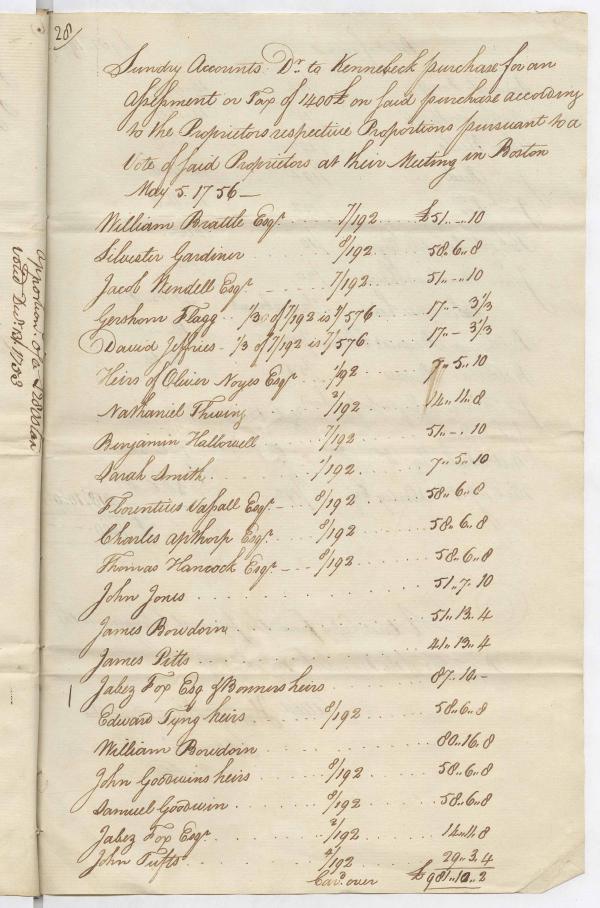 28/
Sundry Accounts Dr. to Kennebeck purchase for an
Assessment or Tax of 1400£ on said purchase according
to the Proprietors respective Proportions pursuant to a
Vote of said Proprietors at their Meeting in Boston
May 5. 1756 —
William Brattle Esqr. 7/192 £51..-..10
Silvester Gardiner 8/192 58..6..8
Jacob Wendell Esqr 7/192 51..-..10
Gershom Flagg 1/3 of 7/192 is 7/576 17..- 3 1/3
David Jeffries - 1/3 of 7/192 is 7/576 17..- 3 1/3
Heirs of Oliver Noyes Esqr 1/192 7..5..10
Nathaniel Thwing 2/192 14..11..8
Benjamin Hallowell 7/192 51..-..10
Sarah Smith 1/192 7..5..10
Florentius Vassall Esqr. - 8/192 58..6..8
Charles Apthorp Esqr. 8/192 58..6..8
Thomas Hancock Esqr. - - 8/192 58..6..8
John Jones 51..7..10
James Bowdoin 51..13..4
James Pitts 41..13..4
Jabez Fox Esq of Bonners heirs 87..10..-
Edward Tyng heirs 8/192 58..6..8
William Bowdoin 80..16..8
John Goodwins heirs 8/192 58..6..8
Samuel Goodwin 8/192 58..6..8
Jabez Fox Esqr. 2/192 14..11..8
John Tufts 4/192 29..3..4
Card. over £981..10..2
Apportiont. of a
voted